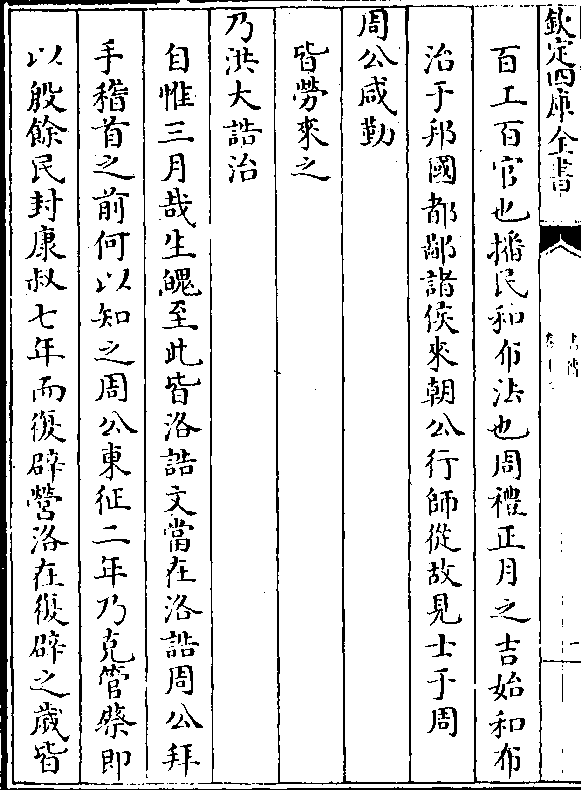 欽定四庫全書
百工百官也播民和布法也周禮正月之吉始和布
治于邦國都鄙諸侯來朝公行師從故見士于周
周公咸勤
皆勞來之
乃洪大誥治
自惟三月哉生魄至此皆洛誥文當在洛誥周公拜
手稽首之前何以知之周公東征二年乃克管蔡即
以殷餘民封康叔七年而復辟營洛在復辟之歲皆